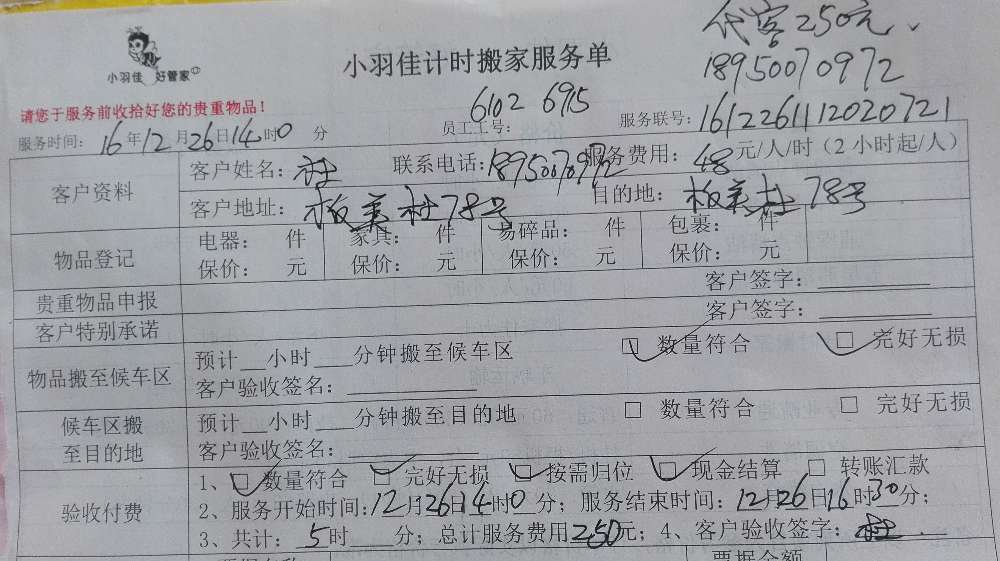 代客250元.
18950070972
小羽佳 好管家
小羽佳计时搬家服务单
请您于服务前收拾好您的贵重物品！
服务时间：16年12月26日14时0分 员工工号：6102 6915 服务联号：1612261112020721
客户资料
客户姓名：杜 联系电话：18950070972 服务费用：48元/人/时（2小时起/人）
客户地址：板美社78号 目的地：板美社78号
物品登记
电器： 件 家具： 件 易碎品： 件 包裹： 件
保价： 元 保价： 元 保价： 元 保价： 元
贵重物品申报 客户签字：
客户特别承诺 客户签字：
物品搬至候车区
预计__小时___分钟搬至候车区 □ 数量符合 □ 完好无损
客户验收签名：
候车区搬至目的地
预计__小时___分钟搬至目的地 □ 数量符合 □ 完好无损
客户验收签名：
验收付费
1、□ 数量符合 □ 完好无损 □ 按需归位 □ 现金结算 □ 转账汇款
2、服务开始时间：12月26日14时0分；服务结束时间：12月26日16时30分；
3、共计：5时___分；总计服务费用250元；4、客户验收签字：杜
票据金额